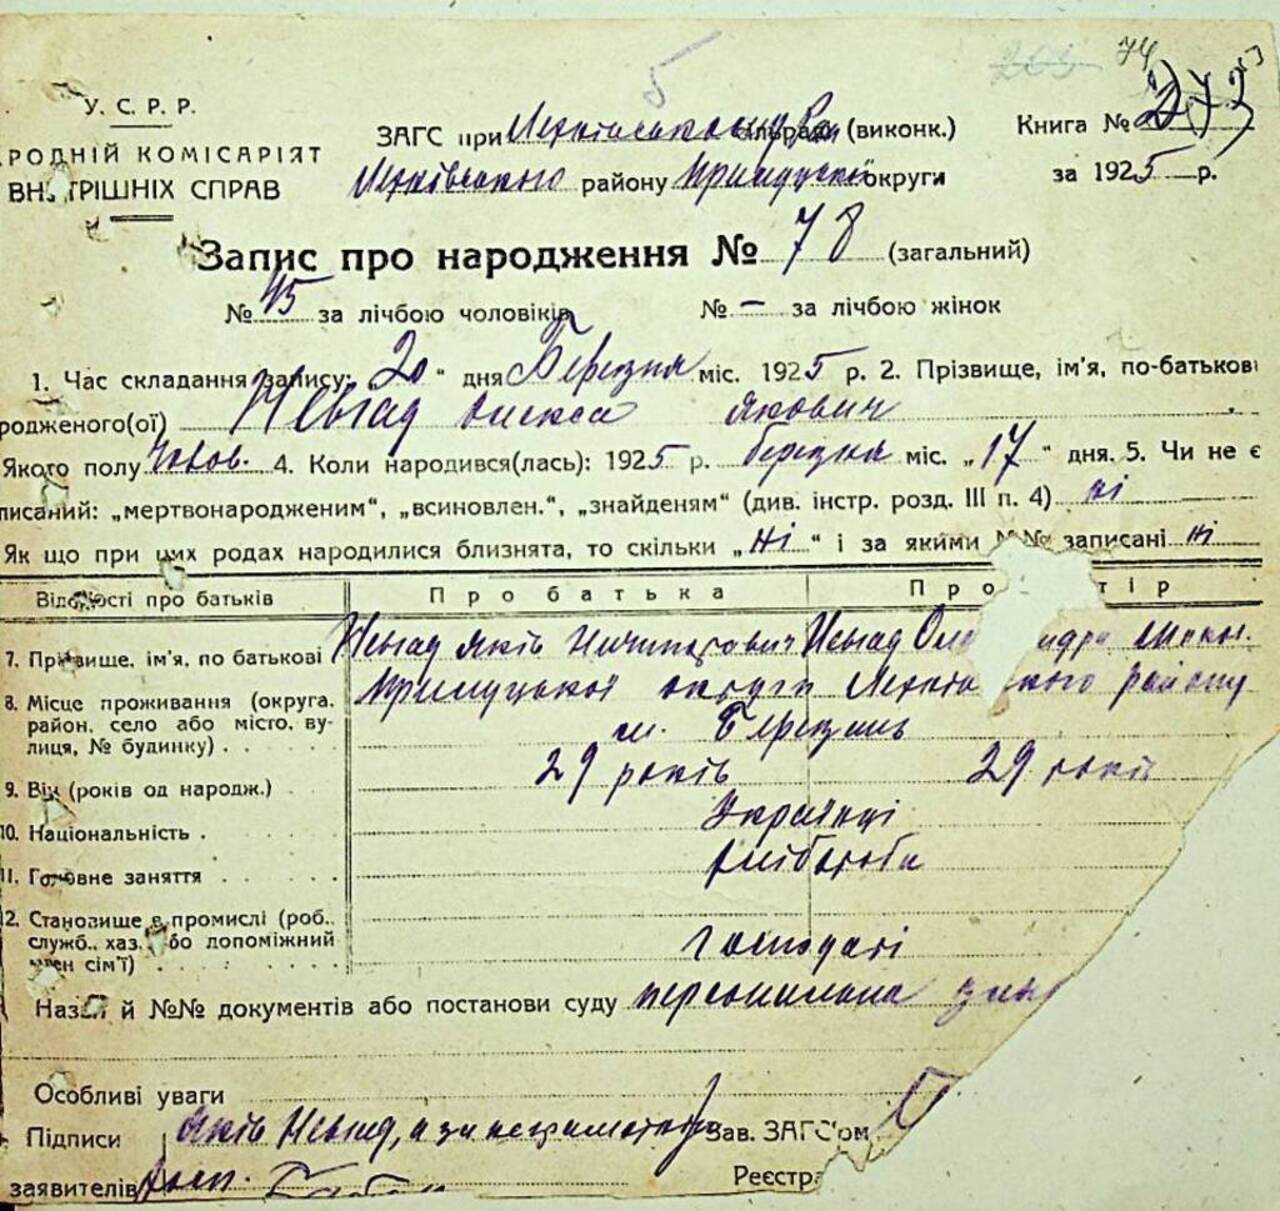 5 74
У. С. Р. Р.
РОДНІЙ КОМІСАРІЯТ
ВН ТРІШНІХ СПРАВ
ЗАГС при (виконк.)
району Прилуцької округи
Книга № 273
за 1925 р.
Запис про народження № 78 (загальний)
№ 45 за лічбою чоловіків № — за лічбою жінок
1. Час складання запису: „20“ дня Березня міс. 1925 р. 2. Прізвище, ім'я, по-батькові
родженого(ої) Олекса Якович
Якого полу Чолов. 4. Коли народився(лась): 1925 р. березня міс. „17“ дня. 5. Чи не є
писаний: „мертвонародженим“, „всиновлен.“, „знайденям“ (див. інстр. розд. III п. 4) ні
Як що при цих родах народилися близнята, то скільки „ні“ і за якими №№ записані ні
Відомості про батьків Про батька Про тір
7. Прізвище, ім'я, по батькові Яків Ничипорович
8. Місце проживання (округа, Прилуцької округи району
район, село або місто, ву- м. Березань
лиця, № будинку)
9. Вік (років од народж.) 29 років 29 років
10. Національність Українці
11. Головне заняття хлібороби
2. Становище в промислі (роб.,
служб., хаз. або допоміжний господарі
член сім'ї)
Назви й №№ документів або постанови суду персональна
Особливі уваги
Підписи Яків а за неграмотн Зав. ЗАГС'ом
заявителів Реєстра